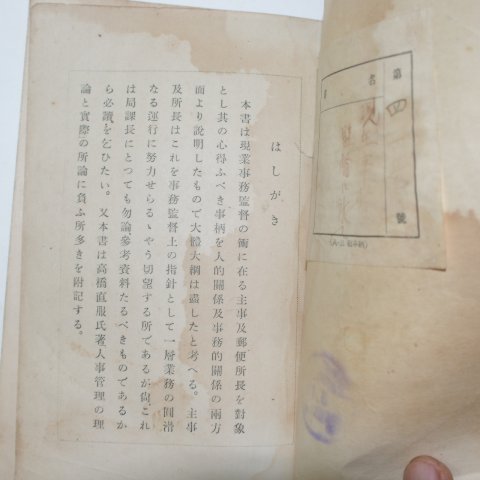 はしがき
本書は現業事務監督の衝に在る主事及郵便所長を對象
とし其の心得ふべき事柄を人的關係及事務的關係の兩方
面より說明したもので大體大綱は盡したと考へる。主事
及所長はこれを事務監督上の指針として一層業務の圓滑
なる運行に努力せらるゝやう切望する所であるが尙これ
は局課長にとつても勿論參考資料たるべきものであるか
ら必讀を乞ひたい。又本書は高橋直服氏著人事管理の理
論と實際の所論に負ふ所多きを附記する。
第四
號
名